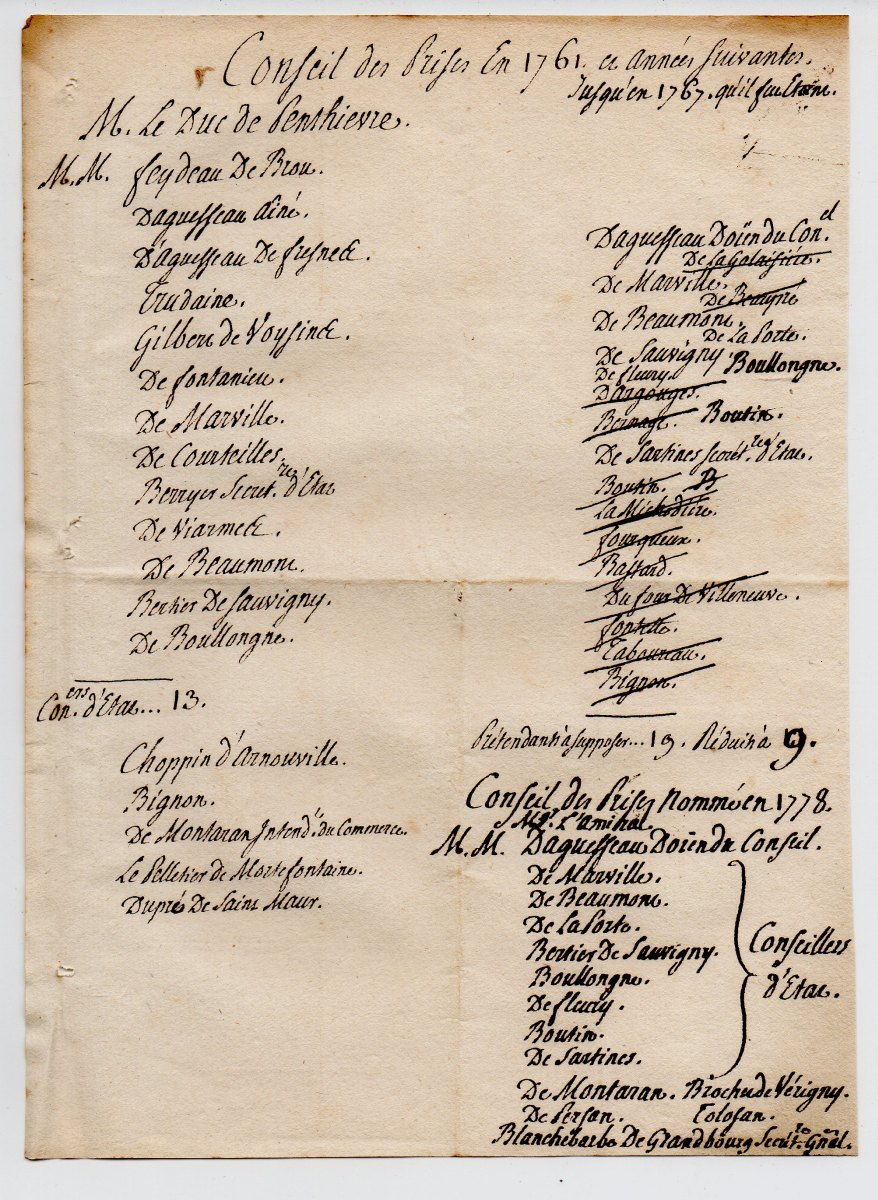 Conseil des Prises En 1761. et années Suivantes.
Jusqu'en 1767. qu'il fut Eteint.
M. Le Duc de Penthievre.
M.M. feydeau De Brou.
Daguesseau aîné.
D'Aguesseau De fresnes.
Trudaine.
Gilbert de Voysins.
De fontanieu.
De Marville.
De Courteilles.
Berryer Secrét.re d'Etat
De Viarmes.
De Beaumont.
Bertier De Sauvigny.
De Boullongne.
Con.ers d'Etat... 13.
Choppin d'Arnouville.
Bignon.
De Montaran Intend.t du Commerce.
Le Pelletier de Mortefontaine.
Dupré De Saint Maur.
Daguesseau Doïen du Con.el
De La Galaisière.
De Marville.
De Beaumont.
De La Porte.
De Sauvigny Boullongne.
De fleury.
D'Argouges.
Bernage. Boutin.
De Sartines Secrét.re d'Etat.
Boutin. B
La Michodière.
fourqueux.
Bastard.
Du four De Villeneuve.
fontette.
Taboureau.
Bignon.
Prétendants à supposer... 19. Réduit à 9.
Conseil des Prises Nommé en 1778.
Mgr. L'amiral
M.M. Daguesseau Doïen du Conseil.
De Marville.
De Beaumont.
De La Porte.
Bertier De Sauvigny.
Boullongne.
De fleury.
Boutin.
De Sartines.
Conseillers
d'Etat.
De Montaran. Brochet de Vérigny.
De Persan. Tolosan.
Blanchebarbe De Grandbourg Secrét.re Gnâl.